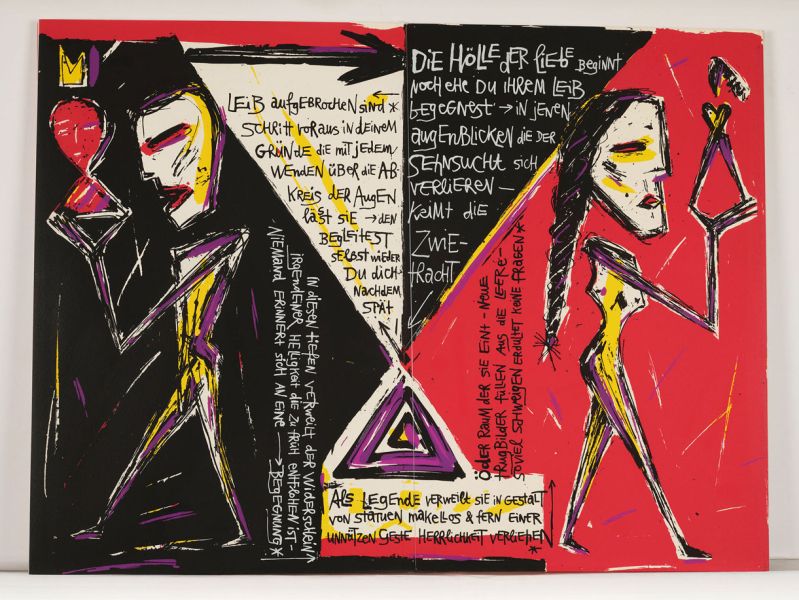 LEiB aufgEBROCHEN sind *
SCHRitt VORAUS iN dEiNEM
GRÜNDE diE Mit jEdEM
WENDEN ÜBER diE AB-
KREiS dER AugEN
läßt siE → dEN
BEglEitEst
sElBst wiEdER
Du diCH-
NACHdEM
spät
DiE HÖllE dER LiEbE BEgiNNt
NOCH EHE DU iHREM LEiB
BEgEgNEst → iN jENEN
AugENBliCKEN diE dER
SEHNSUCHt siCH
VERliEREN —
KEiMt diE
ZWiE-
tRACHt
iN diESEN tiEfEN VERWEilt dER WidERSCHEiN
iRgENdEiNER HElligKEit diE zu fRÜH ENtfloHEN ist-
NiEMANd ERiNNERt siCH AN EiNE → BEgEgNuNg *
ÖdER RAuM dER siE EiNt - NEuE
tRugBildER füllEN Aus diE lEERE -
SoViEl SCHWEigEN ERduldEt KEiNE fRAgEN *
Als LEgENdE VERWEilt siE iN gEstAlt
VON StAtuEN MAKEllos & fERN EiNER
uNNützEN gEstE HERRliCHKEit VERliEHEN *